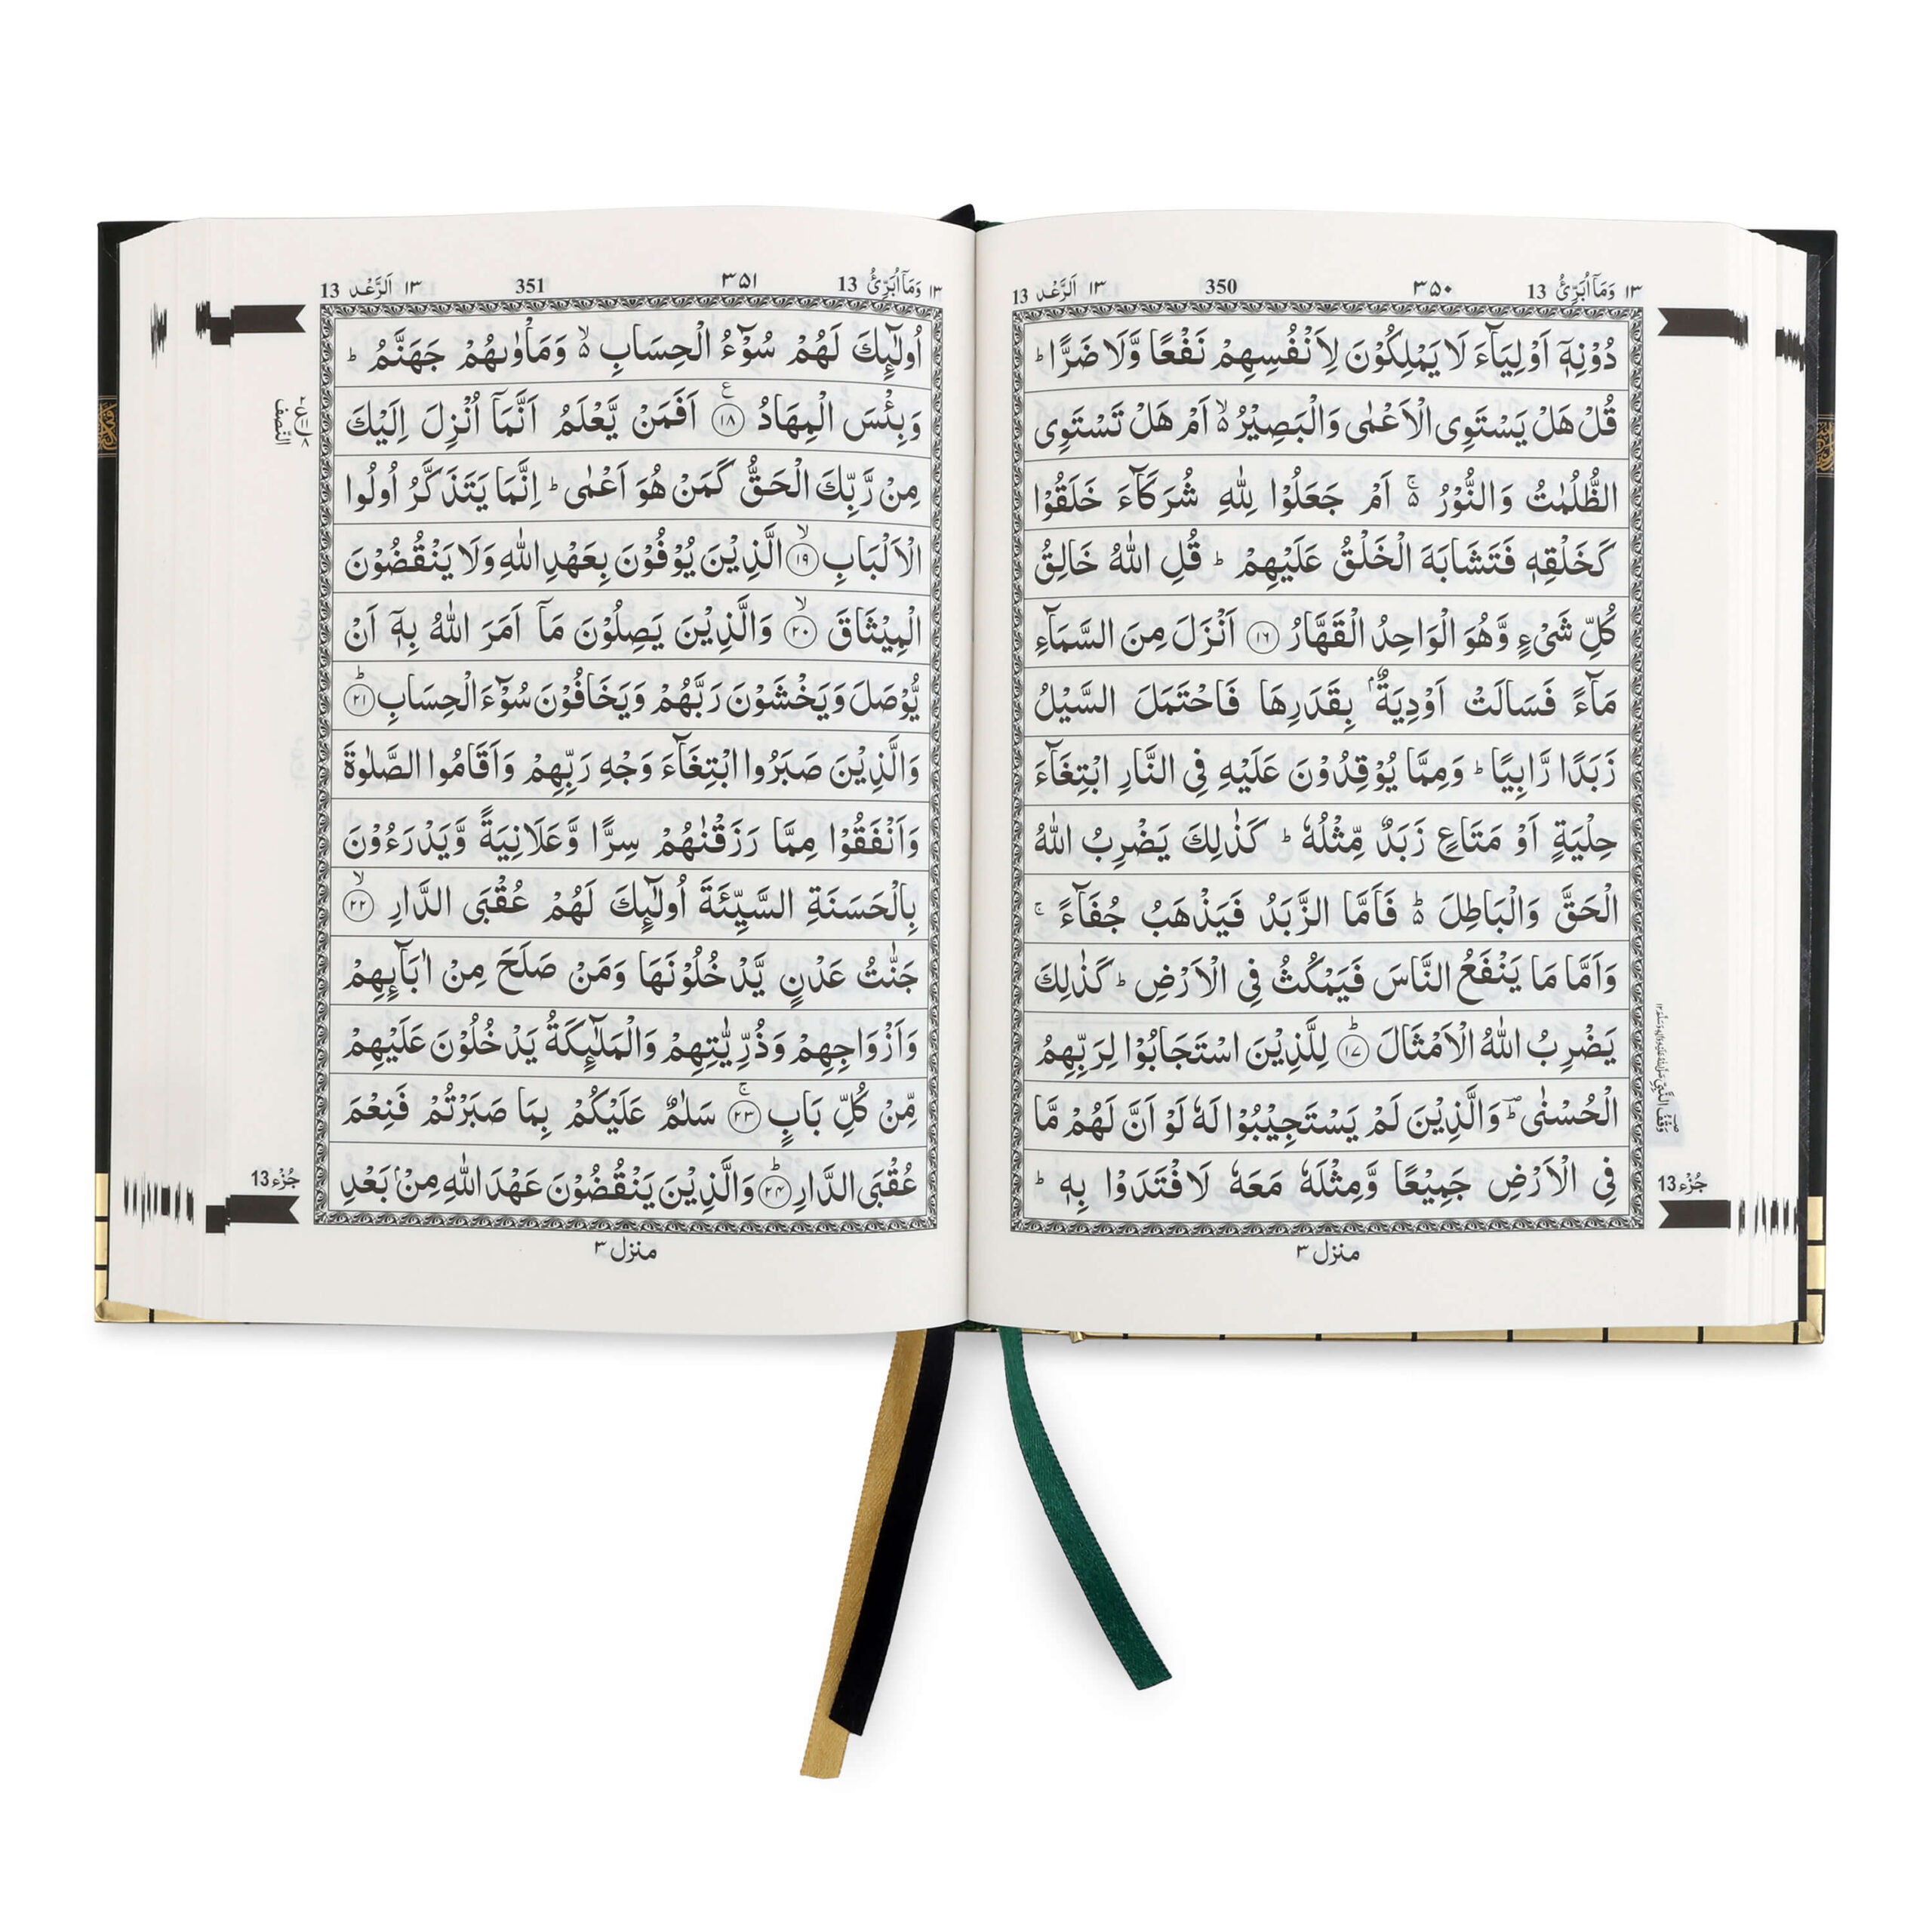 ١٣ وَمَآ اُبَرِّئُ 13 ٣۵٠ 350 ١٣ اَلرَّعْد 13
دُوْنِهٖۤ اَوْلِيَآءَ لَا يَمْلِكُوْنَ لِاَنْفُسِهِمْ نَفْعًا وَّلَا ضَرًّا ؕ
قُلْ هَلْ يَسْتَوِى الْاَعْمٰى وَالْبَصِيْرُ ۙ۬ اَمْ هَلْ تَسْتَوِى
الظُّلُمٰتُ وَالنُّوْرُ ۚ۬ اَمْ جَعَلُوْا لِلّٰهِ شُرَكَآءَ خَلَقُوْا
كَخَلْقِهٖ فَتَشَابَهَ الْخَلْقُ عَلَيْهِمْ ؕ قُلِ اللّٰهُ خَالِقُ
كُلِّ شَىْءٍ وَّهُوَ الْوَاحِدُ الْقَهَّارُ ١٦ اَنْزَلَ مِنَ السَّمَآءِ
مَآءً فَسَالَتْ اَوْدِيَةٌۢ بِقَدَرِهَا فَاحْتَمَلَ السَّيْلُ
زَبَدًا رَّابِيًا ؕ وَمِمَّا يُوْقِدُوْنَ عَلَيْهِ فِى النَّارِ ابْتِغَآءَ
حِلْيَةٍ اَوْ مَتَاعٍ زَبَدٌ مِّثْلُهٗ ؕ كَذٰلِكَ يَضْرِبُ اللّٰهُ
الْحَقَّ وَالْبَاطِلَ ؕ۬ فَاَمَّا الزَّبَدُ فَيَذْهَبُ جُفَآءً ۚ
وَاَمَّا مَا يَنْفَعُ النَّاسَ فَيَمْكُثُ فِى الْاَرْضِ ؕ كَذٰلِكَ
يَضْرِبُ اللّٰهُ الْاَمْثَالَ ؕ ١٧ لِلَّذِيْنَ اسْتَجَابُوْا لِرَبِّهِمُ
الْحُسْنٰى ؕ وَالَّذِيْنَ لَمْ يَسْتَجِيْبُوْا لَهٗ لَوْ اَنَّ لَهُمْ مَّا
فِى الْاَرْضِ جَمِيْعًا وَّمِثْلَهٗ مَعَهٗ لَافْتَدَوْا بِهٖ ؕ
جُزْء 13
منزل ٣
١٣ وَمَآ اُبَرِّئُ 13 ٣۵١ 351 ١٣ اَلرَّعْد 13
اُولٰٓئِكَ لَهُمْ سُوْٓءُ الْحِسَابِ ۙ۬ وَمَاْوٰىهُمْ جَهَنَّمُ ؕ
وَبِئْسَ الْمِهَادُ ١٨ اَفَمَنْ يَّعْلَمُ اَنَّمَآ اُنْزِلَ اِلَيْكَ
النصف
مِنْ رَّبِّكَ الْحَقُّ كَمَنْ هُوَ اَعْمٰى ؕ اِنَّمَا يَتَذَكَّرُ اُولُوا
الْاَلْبَابِ ۙ ١٩ الَّذِيْنَ يُوْفُوْنَ بِعَهْدِ اللّٰهِ وَلَا يَنْقُضُوْنَ
الْمِيْثَاقَ ۙ ٢٠ وَالَّذِيْنَ يَصِلُوْنَ مَآ اَمَرَ اللّٰهُ بِهٖۤ اَنْ
يُّوْصَلَ وَيَخْشَوْنَ رَبَّهُمْ وَيَخَافُوْنَ سُوْٓءَ الْحِسَابِ ؕ ٢١
وَالَّذِيْنَ صَبَرُوا ابْتِغَآءَ وَجْهِ رَبِّهِمْ وَاَقَامُوا الصَّلٰوةَ
وَاَنْفَقُوْا مِمَّا رَزَقْنٰهُمْ سِرًّا وَّعَلَانِيَةً وَّيَدْرَءُوْنَ
بِالْحَسَنَةِ السَّيِّئَةَ اُولٰٓئِكَ لَهُمْ عُقْبَى الدَّارِ ۙ ٢٢
جَنّٰتُ عَدْنٍ يَّدْخُلُوْنَهَا وَمَنْ صَلَحَ مِنْ اٰبَآئِهِمْ
وَاَزْوَاجِهِمْ وَذُرِّيّٰتِهِمْ وَالْمَلٰٓئِكَةُ يَدْخُلُوْنَ عَلَيْهِمْ
مِّنْ كُلِّ بَابٍ ۚ ٢٣ سَلٰمٌ عَلَيْكُمْ بِمَا صَبَرْتُمْ فَنِعْمَ
عُقْبَى الدَّارِ ؕ ٢٤ وَالَّذِيْنَ يَنْقُضُوْنَ عَهْدَ اللّٰهِ مِنْۢ بَعْدِ
جُزْء 13
منزل ٣